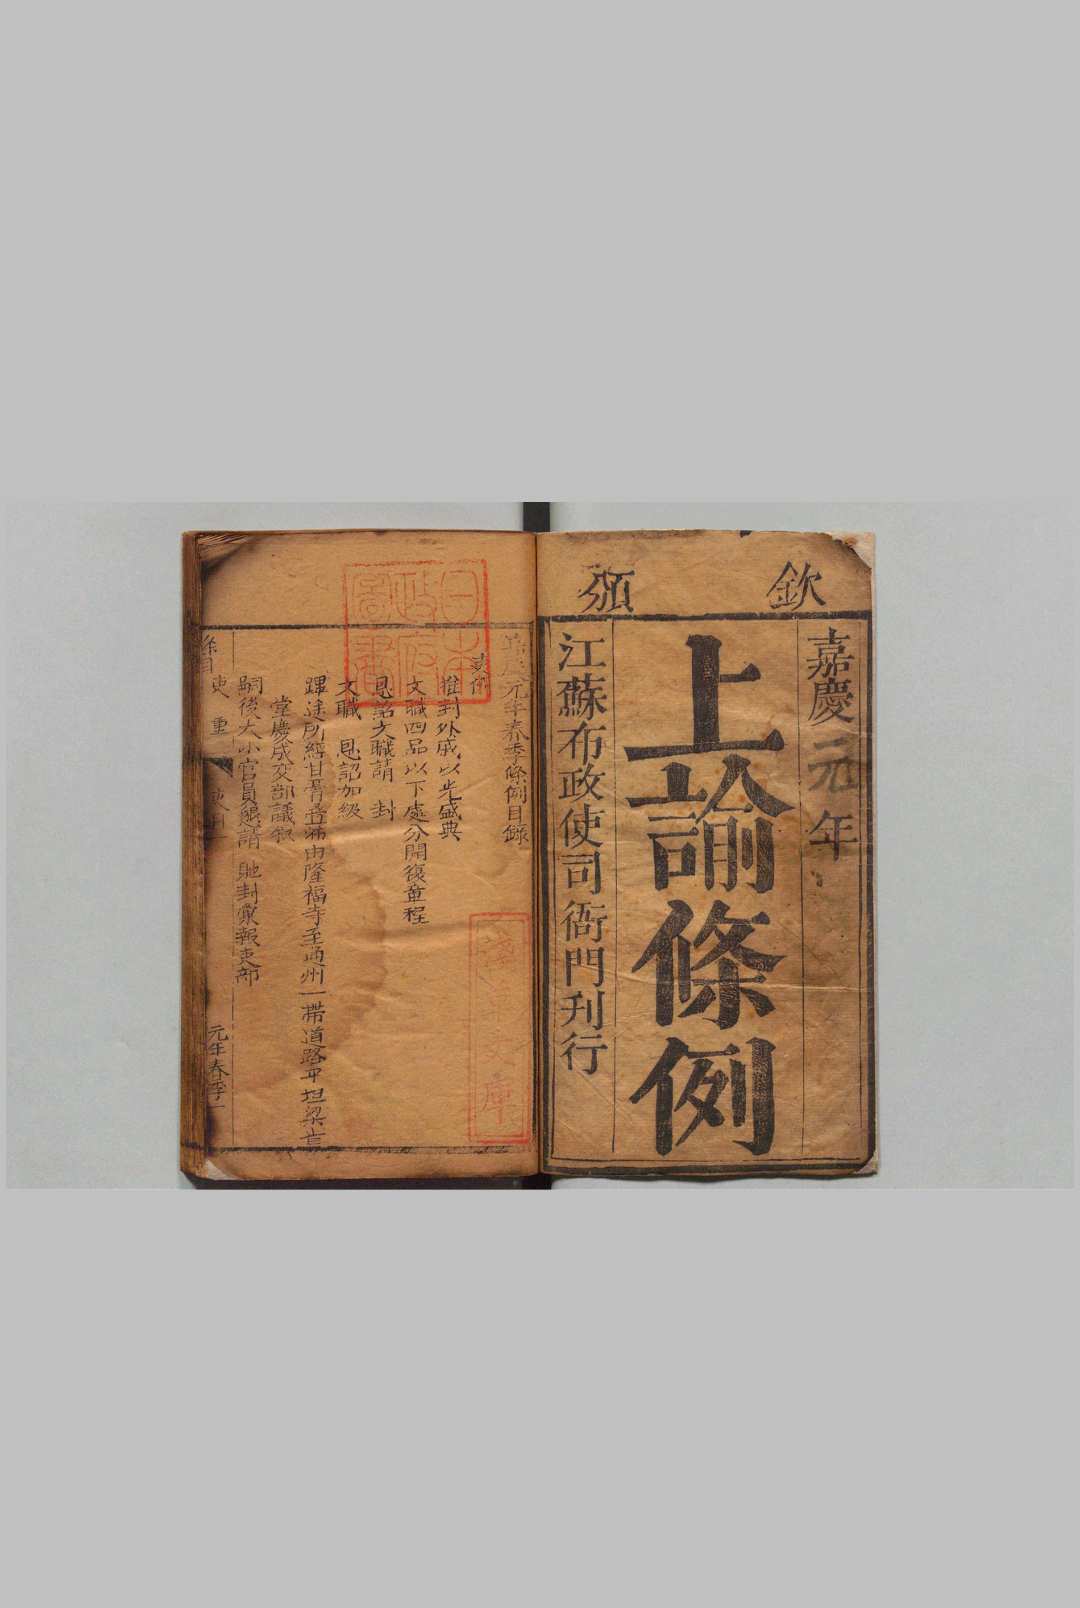 欽頒
嘉慶元年
上諭條例
江蘇布政使司衙門刊行
日本
政府
圖書
嘉慶元年春季條例目錄
吏例
推封外戚以光盛典
文職四品以下處分開復章程
恩詔文職請 封
文職 恩詔加級
蹕途所經 由隆福寺至通州一帶道路平坦梁
堂慶成交部議叙
嗣後大小官員 請 貤封彙報吏部
條例
吏
吏目一
元年春季一
文庫